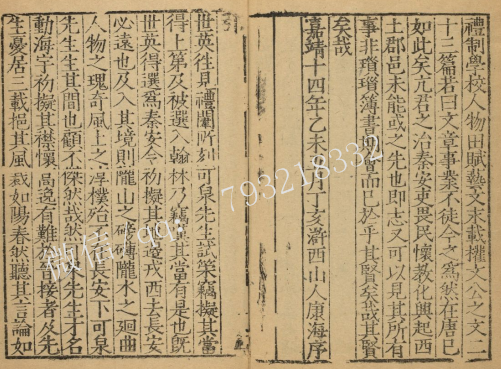 禮制學校人物田賦藝文末載權文公之文二
十二篇若曰文章事業不徒今之為然在唐已
如此矣亢君之治秦安吏畏民懷教化興起西
土郡邑未能或之先也即志又可以見其所有
事非瑣瑣薄書間會而已於乎其賢矣哉其賢
矣哉
嘉靖十四年乙未 月丁亥滸西山人康海序
世英往見禮闈所刻可泉先生試策竊擬其當
得上第及被選入翰林乃竊 其當有是也既
世英得選為秦安令初擬其 邊戎西去長安
必遠也及入其境則隴山之 礡隴水之廻曲
人物之瑰奇風土之 樸殆 長安下可泉
先生生其間也顧不傑然哉然 先生才名
動海宇初擬其襟懷高逸有難於 接者及先
生憂居三載挹其風裁如陽春然聽其言論如
微信 qq: 793218332